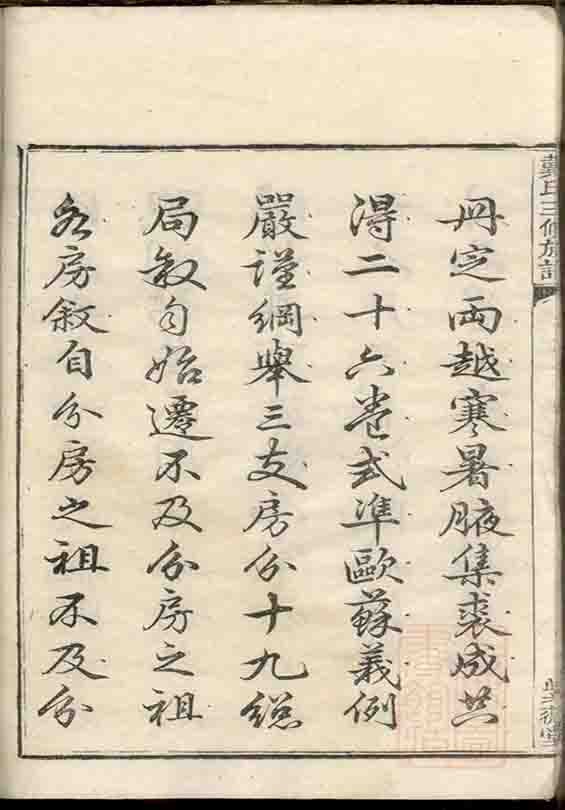 丹定兩越寒暑腋集裘成共
得二十六卷式準歐蘇義例
嚴謹綱舉三支房分十九總
局敘自始遷不及分房之祖
各房敘自分房之祖不及分
氏三修族譜